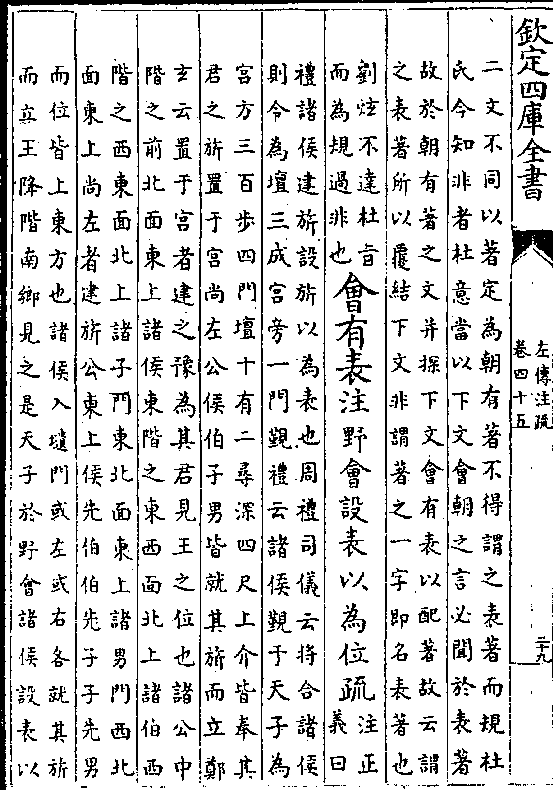 欽定四庫全書
左傳注疏
卷四十五
二十九
二文不同以著定為朝有著不得謂之表著而規杜
氏今知非者杜意當以下文會朝之言必聞於表著
故於朝有著之文并探下文會有表以配著故云謂
之表著所以覆結下文非謂著之一字即名表著也
劉炫不達杜旨
而為規過非也
會有表注野會設表以為位疏
注正
義曰
禮諸侯建旂設旂以為表也周禮司儀云將合諸侯
則令為壇三成宮旁一門覲禮云諸侯覲于天子為
宮方三百步四門壇十有二尋深四尺上介皆奉其
君之旂置于宮尚左公侯伯子男皆就其旂而立鄭
玄云置于宮者建之豫為其君見王之位也諸公中
階之前北面東上諸侯東階之東西面北上諸伯西
階之西東面北上諸子門東北面東上諸男門西北
面東上尚左者建旂公東上侯先伯伯先子子先男
而位皆上東方也諸侯入壝門或左或右各就其旂
而立王降階南鄉見之是天子於野會諸侯設表以